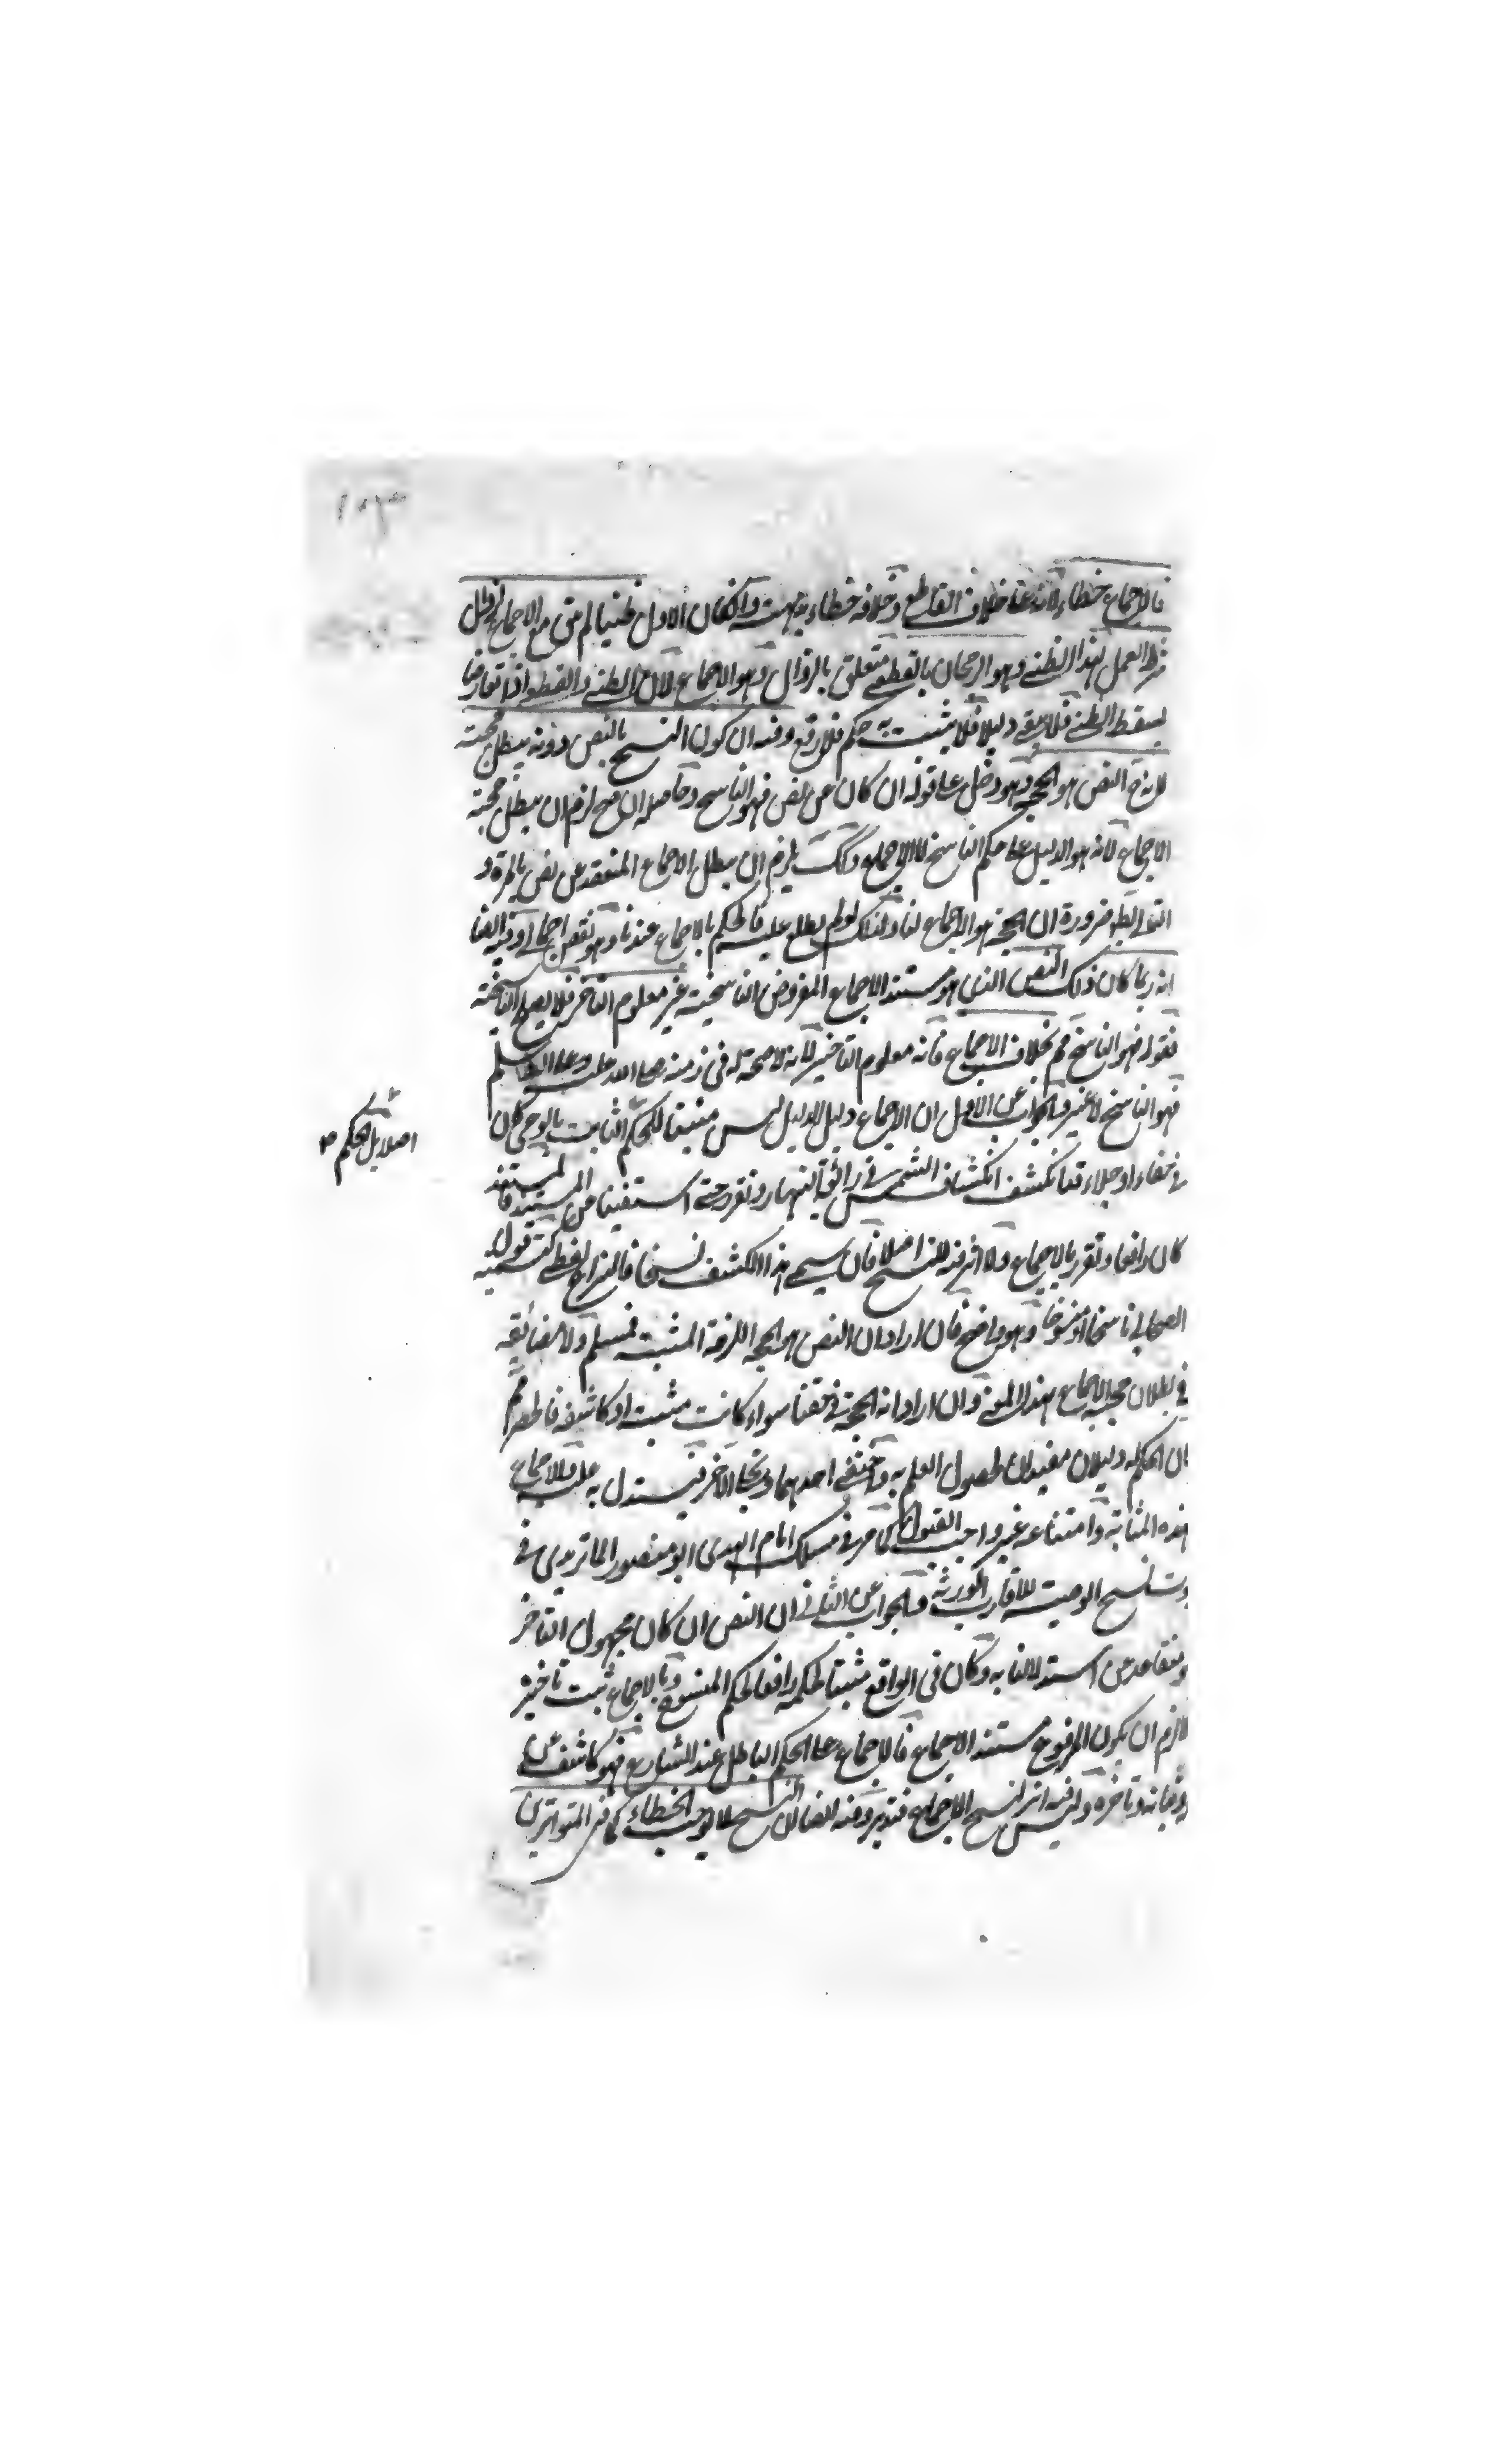 فالاجماع خطاء لانه على خلاف القاطع وخلافه خطاء وان كان الاول ظنيا لم يبق مع الاجماع لزوال
شرط العمل بهذا الظني وهو الرجحان بالقطعي متعلق بالزوال وهو الاجماع لان الظني والقطع اذا تعارضا
يسقط الظني فلا يبقى دليلا فلا يثبت به حكم فلا رفع وفيه ان كون النسخ بالنص دونه يبطل حجيته
لان ح النص هو الحجة وهو دخل على قوله ان كان عن نص فهو الناسخ وحاصله ان ح لزم ان يبطل حجية
الاجماع لانه هو الدليل على حكم الناسخ لا الاجماع وكك يلزم ان يبطل الاجماع المنعقد عن نص بالمرة و
التالي بط ضرورة ان الحجة هو الاجماع لنا ولذلك لو لم يطلع عليه فالحكم بالاجماع عندنا وهو نقض اجمالي وفيه ايضا
انه ربما كان ذلك النص الذي هو مستند الاجماع المفروض الناسخية غير معلوم التاخر فلا يصلح الناسخية
فقوله فهو الناسخ مم بخلاف الاجماع فانه معلوم التاخير لانه لا صحة له في زمنه صلى الله عليه وعلى اله وسلم
فهو الناسخ لا غير والجواب عن الاول ان الاجماع دليل الدليل ليس مثبتا للحكم الثابت بالوحي كان
اصلا بل الحكم صح
في خفاء او جلاء فانكشف انكشاف الشمس في رائق النهار وتقرر حتى استغنينا من المستند فالمستند
كان رافعا وتقرر بالاجماع ولا اثر فيه للنسخ اصلا فان سمي هذا الكشف نسخا فالنزاع لفظي كتسمية قول
الصحابي ناسخا او منسوخا وهو واضح فان اراد ان النص هو الحجة المثبت فمسلم ولا مضايقة
في بطلان حجية الاجماع بهذا المعنى وان اراد انه الحجة في حقنا سواء كانت مثبتة او كاشفة فالحصر مم
لان الحكم له دليلان مفيدان لحصول العلم به واختفى احدهما وتجلى الاخر فيستدل به عليه والاجماع
بهذه المثابة وامتناعه غير واجب القبول كما مر في مسلك امام الهدى ابو منصور الماتريدي في
نسخ الوصية للاقارب الورثة والجواب عن الثاني ان النص ان كان مجهول التاخر
استدلالنا به وكان في الواقع مثبتا لحكمه رافعا لحكم المنسوخ وبالاجماع ثبت تاخيره
لا لزم ان يكون المرفوع مستند الاجماع فالاجماع على الحكم الباطل عند الشارع فهو كاشف عن
وتاخره وليس فيه اثر لنسخ الاجماع فتدبر وفيه ايضا ان النسخ لا يوجب الخطاء كما في المتواترين